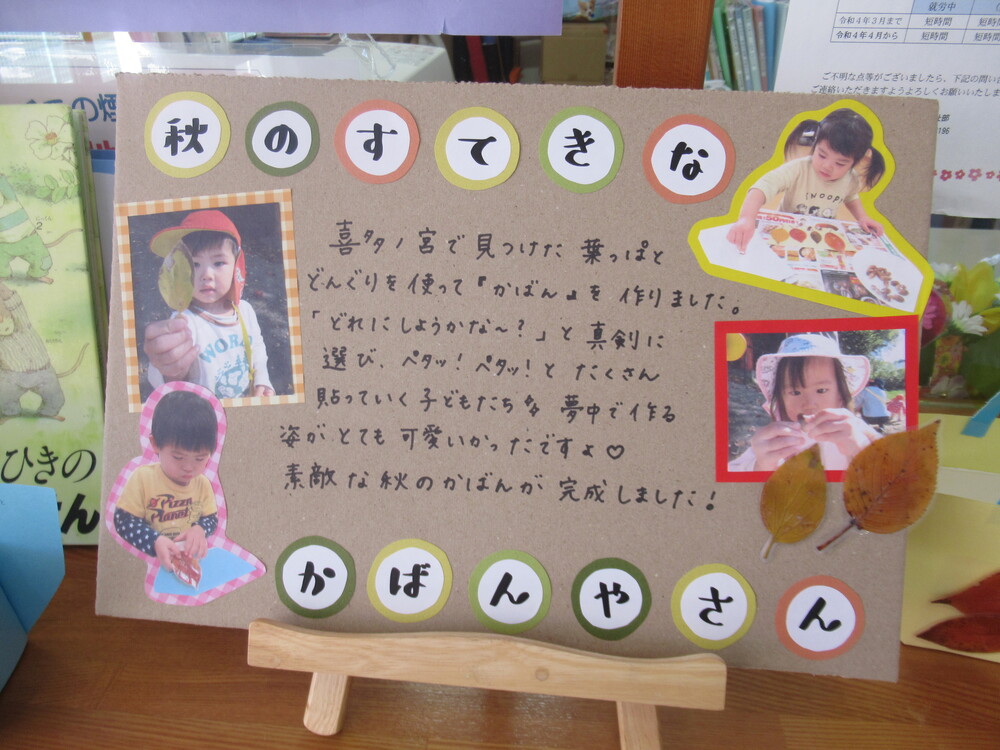 就労中
令和4年3月まで 短時間 短時
令和4年4月から 短時間 短時
ご不明な点等がございましたら、下記の問い合
ご連絡いただきますようよろしくお願いいたしま
196
秋のすてきな
喜多ノ宮で見つけた葉っぱと
どんぐりを使って『かばん』を作りました。
「どれにしようかな〜?」と真剣に
選び、ペタッ!ペタッ!とたくさん
貼っていく子どもたち 夢中で作る
姿がとても可愛いかったですよ♡
素敵な秋のかばんが完成しました!
かばんやさん
SNOOPY
WORD
Pizza
Planet
ひきの